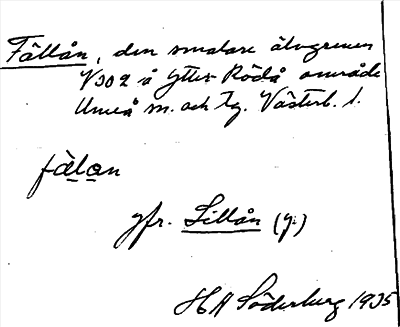 Fällån, den smalare älvgrenen
V302 å Ytter-Rödå område
Umeå sn. och tg. Västerb. l.
fälan
jfr. Lillån (g.)
HA Söderberg 1935